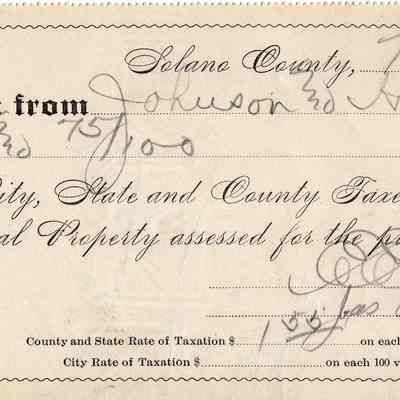 Solano County,
from Johnson &
& 75/100
ity, State and County Taxe
al Property assessed for the p
Jas
County and State Rate of Taxation $ 1 55 on each
City Rate of Taxation $ on each 100 v